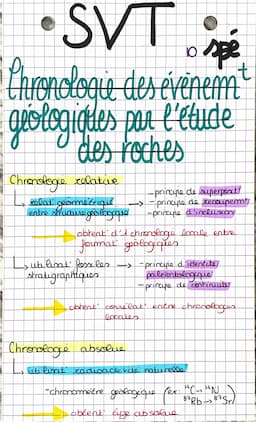 SVT
spé
Chronologie des évènemt
géologiques par l'étude
des roches
Chronologie relative
↳ relat° géométrique entre structure géologique → - principe de superposit°
- principe de recoupemt
- principe d'inclusion
→ obtent° d'1 chronologie locale entre
format° géologiques
↳ utilisat° fossiles stratigraphiques → - principe d'identité
paléontologique
- principe de continuité
→ obtent° corrélat° entre chronologies
locales
Chronologie absolue
↳ utilisat° radioactivité naturelle
- chronomètre géologique (ex: ¹⁴C → ¹⁴N
⁸⁷Rb → ⁸⁷Sr)
→ obtent° âge absolue